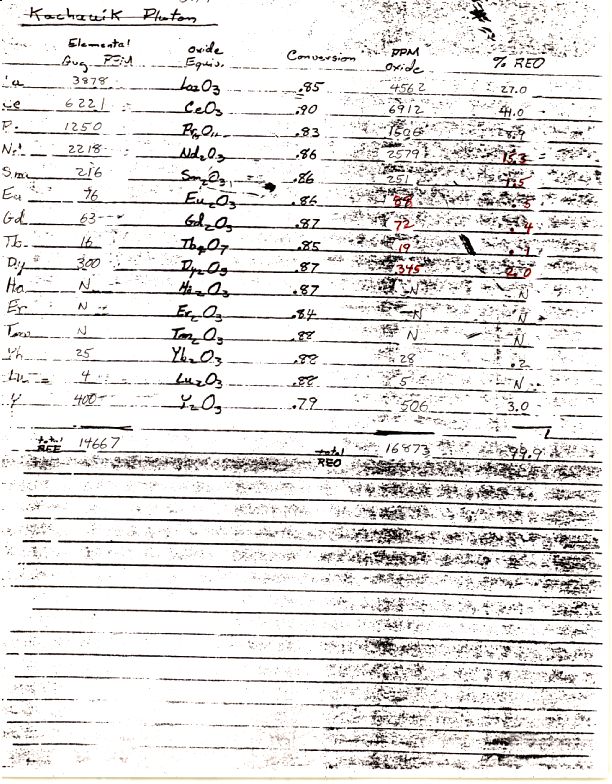 Kachauik Pluton
Elemental Avg PPM Oxide Equiv. Conversion PPM oxide % REO
La 3878 La2O3 .85 4562 27.0
Ce 6221 CeO3 .90 6912 41.0
Pr 1250 Pr6O11 .83 1506 8.9
Nd 2218 Nd2O3 .86 2579 15.3
Sm 216 Sm2O3 .86 251 1.5
Eu 76 Eu2O3 .86 88 .5
Gd 63 Gd2O3 .87 72 .4
Tb 16 Tb4O7 .85 19 .1
Dy 300 Dy2O3 .87 345 2.0
Ho N Ho2O3 .87 N N
Er N Er2O3 .84 N N
Tm N Tm2O3 .88 N N
Yb 25 Yb2O3 .88 28 .2
Lu 4 Lu2O3 .88 5 N
Y 400 Y2O3 .79 506 3.0
total REE 14667 total REO 16873 99.9